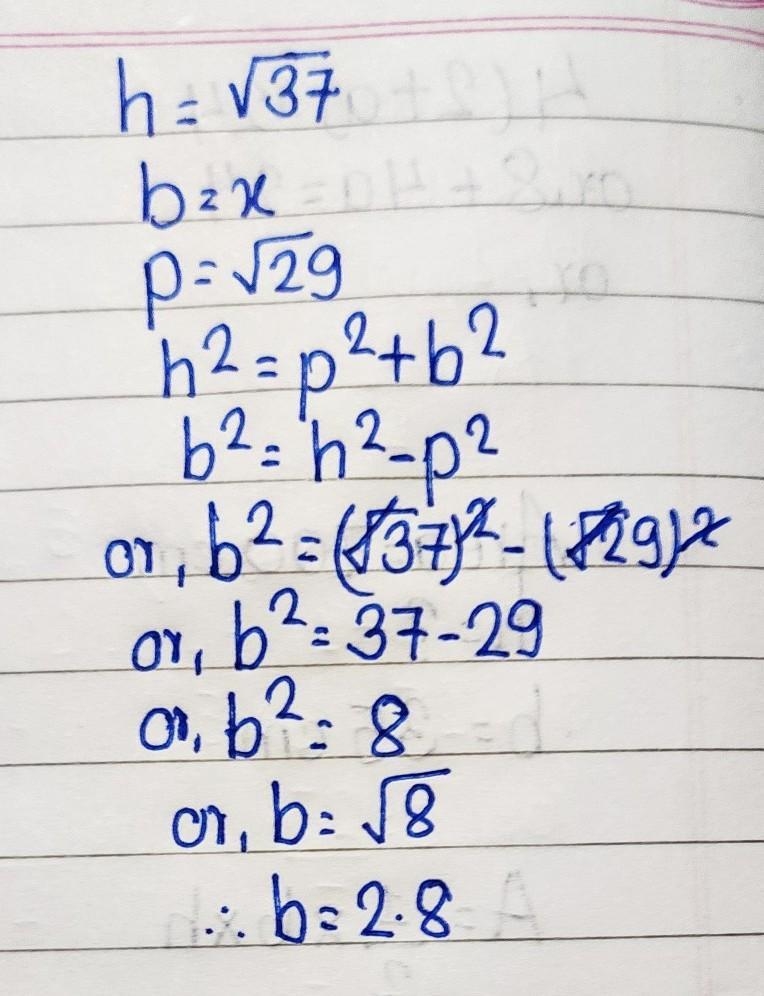 h = √37
b = x
p = √29
h² = p² + b²
b² = h² - p²
or, b² = (√37)² - (√29)²
or, b² = 37 - 29
or, b² = 8
or, b = √8
∴ b = 2.8